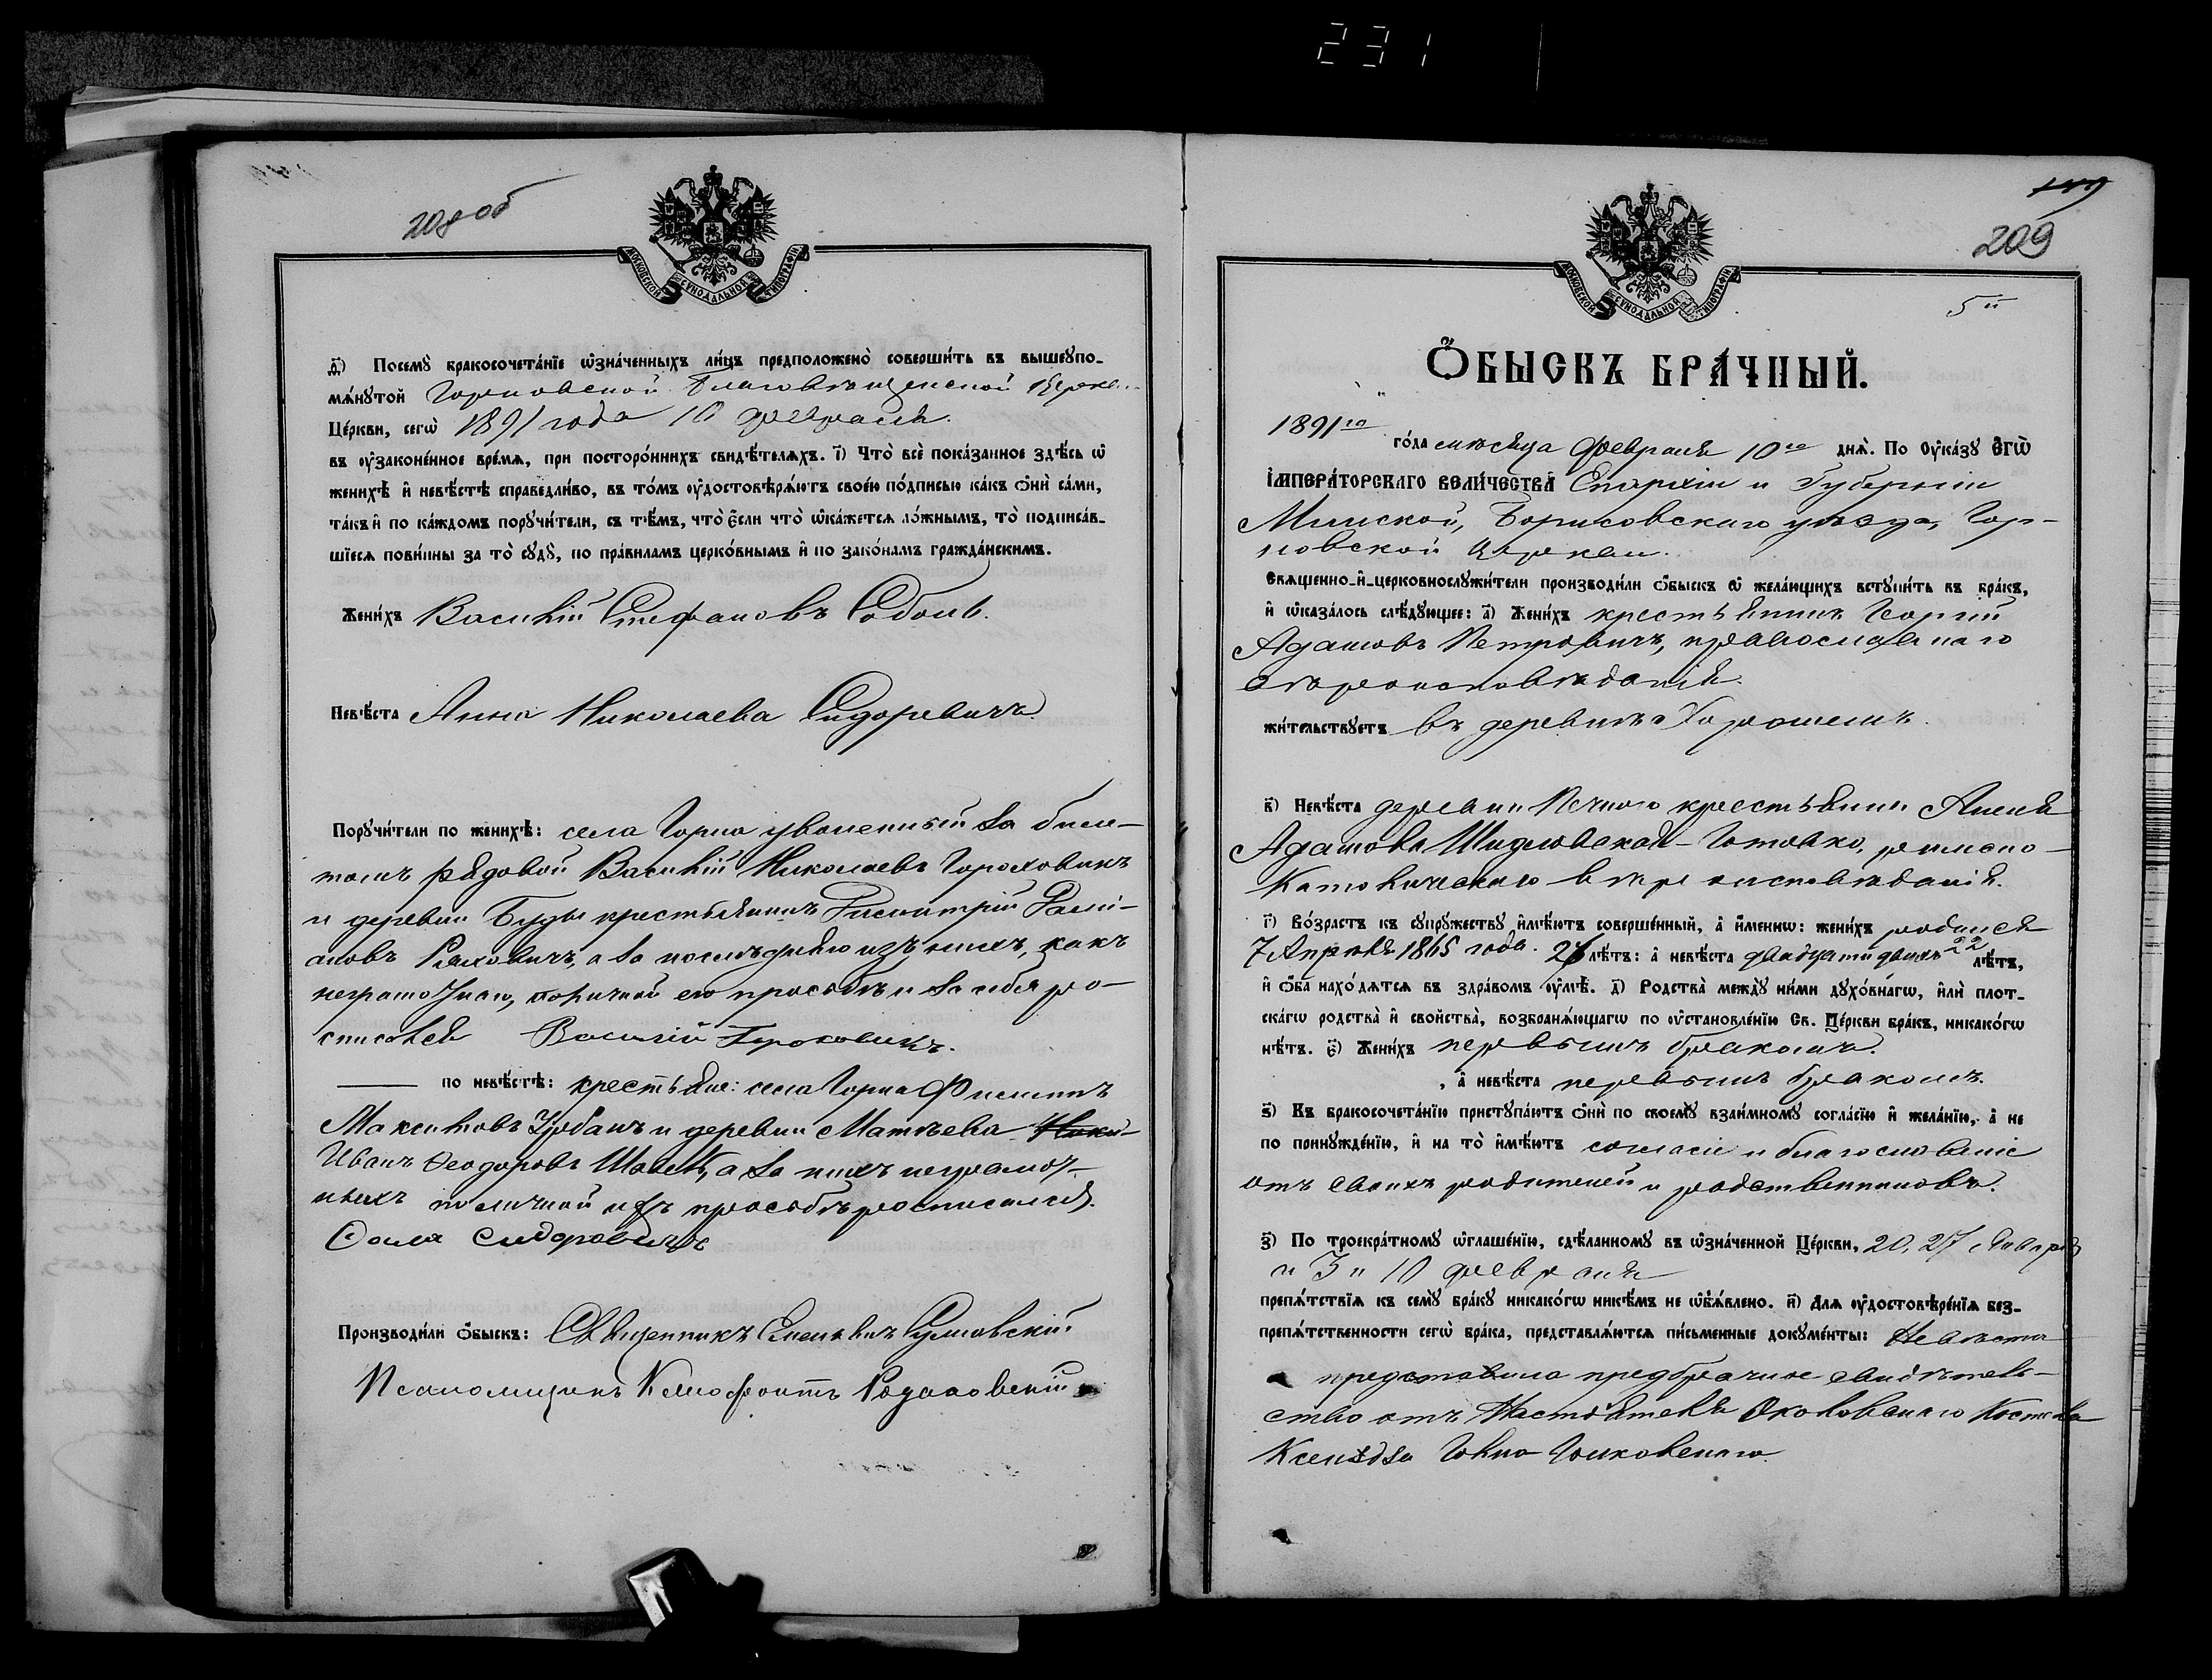 231
208 об
МОСКОВСКОЙ СѴНОДАЛЬНОЙ ТИПОГРАФІИ
д҃і) Посемꙋ̀ бракосочета́нїе ѡ҆зна́ченныхъ ли́цъ предположено̀ соверши́ть въ вышеꙋпо-
мѧ́нꙋтой Горновской Благовѣщенской Церкви
Це́ркви, сегѡ̀ 1891 года 10 февраля.
въ ᲂу҆зако́ненное вре́мѧ, при посторо́ннихъ свидѣ́телѧхъ. і҃) Что̀ всѐ пока́занное здѣ́сь ѡ҆
женихѣ̀ и҆ невѣ́стѣ справедли́во, въ то́мъ ᲂу҆достовѣрѧ́ютъ свое́ю по́дписью ка́къ ѻ҆нѝ са́ми,
та́къ и҆ по ка́ждомъ порꙋчи́тели, съ тѣ́мъ, что̀ є҆́сли что̀ ѡ҆ка́жетсѧ ло́жнымъ, то̀ подписа́в-
шїесѧ пови́нны за то̀ сꙋдꙋ̀, по пра́виламъ церко́внымъ и҆ по зако́намъ гражда́нскимъ.
Жени́хъ Василій Стефановъ Соболь.
Невѣ́ста Анна Николаева Сидоревичъ.
Порꙋчи́тели по женихѣ̀: села Горна уволенный за биле-
томъ рядовой Василій Николаевъ Гороховикъ
и деревни Буды крестьянинъ Димитрій
а за послѣдняго изъ нихъ, какъ
неграмотнаго, по личной его просьбѣ и за себя ро-
списался Василій Гороховикъ.
по невѣ́стѣ: крестьяне: села Горна Филиппъ
Максимовъ Урбанъ и деревни Матвѣева
Иванъ Ѳеодоровъ а за нихъ неграмот-
ныхъ по личной ихъ просьбѣ росписался
Сидоровичъ
Производи́ли ѻ҆́быскъ: Священникъ Сулковскій
Псаломщикъ Ксенофонтъ
149
209
5й
МОСКОВСКОЙ СѴНОДАЛЬНОЙ ТИПОГРАФІИ
Ѻ҆́БЫСКЪ БРА́ЧНЫЙ.
1891го
го́да мѣсяца Февраля 10го днѧ̀. По ᲂу҆ка́зꙋ Є҆ГѠ̀
І҆МПЕРА́ТОРСКАГО ВЕЛИ́ЧЕСТВА Епархіи и Губерніи
Минской, Борисовскаго уѣзда, Гор-
новской церкви.
Сващенно-и҆-церковнослꙋжи́тели производи́ли ѻ҆́быскъ ѡ҆ жела́ющихъ встꙋпи́ть въ бра́къ,
и҆ ѡ҆каза́лось слѣ́дꙋющее: а҃) Жени́хъ крестьянинъ Георгій
Адамовъ Петровичъ, православнаго
вѣроисповѣданія.
жи́тельствꙋетъ въ деревнѣ Хорошемъ.
в҃) Невѣ́ста деревни Печного крестьянка Анеля
Адамова Шидловская-Готовко, римско-
католическаго вѣроисповѣданія.
г҃) Во́зрастъ къ сꙋпрꙋ́жествꙋ и҆мѣ́ютъ соверше́нный, а҆ и҆́меннѡ: жени́хъ родился
7 Апрѣля 1865 года. 26 лѣ́тъ: а҆ невѣ́ста двадцати двухъ 22 лѣ́тъ,
и҆ ѻ҆́ба нахо́дѧтсѧ въ здра́вомъ ᲂу҆мѣ̀. д҃) Родства̀ междꙋ̀ ни́ми дꙋхо́внагѡ, и҆лѝ плот-
ска́гѡ родства̀ и҆ сво́йства, возбранѧ́ющагѡ по ᲂу҆становле́нїю Св. Це́ркви бра́къ, никако́гѡ
нѣ́тъ. є҃) Жени́хъ первымъ бракомъ.
, а҆ невѣ́ста первымъ бракомъ.
ѕ҃) Къ бракосочета́нїю пристꙋпа́ютъ ѻ҆нѝ по своемꙋ̀ взаи́мномꙋ согла́сїю и҆ жела́нїю, а҆ не
по принꙋжде́нїю, и҆ на то̀ и҆мѣ́ютъ согласіе и благословеніе
отъ своихъ родителей и родственниковъ.
з҃) По троекра́тномꙋ ѡ҆глаше́нїю, сдѣ́ланномꙋ въ ѡ҆зна́ченной Це́ркви, 20, 27 Января
и 3 и 10 февраля
препѧ́тствїѧ къ семꙋ̀ бра́кꙋ никако́гѡ никѣ́мъ не ѡ҆б̾ѧ́влено. и҃) Длѧ ᲂу҆достовѣре́нїѧ без-
препѧ́тственности сегѡ̀ бра́ка, представлѧ́ютсѧ пи́сьменные докꙋме́нты: Невѣста
представила предбрачное свидѣтель-
ство отъ Настоятеля Околовскаго Костела
Ксендза